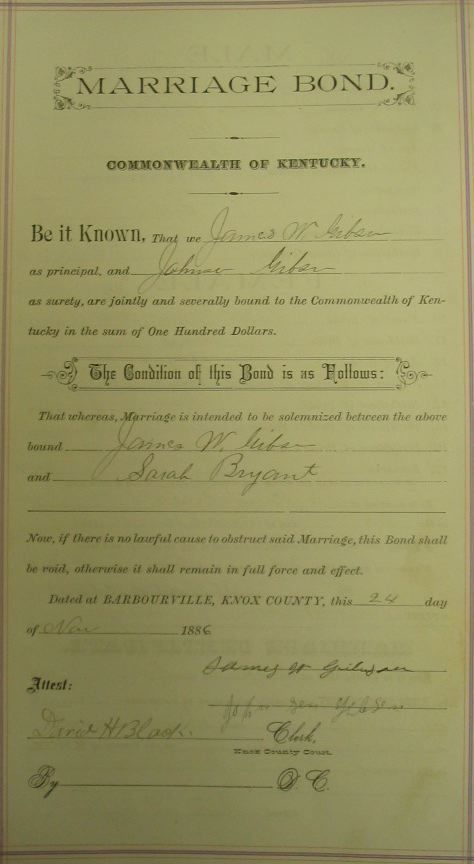 MARRIAGE BOND.
COMMONWEALTH OF KENTUCKY.
Be it Known, That we James W. Gibson
as principal, and Johnson Gibson
as surety, are jointly and severally bound to the Commonwealth of Ken-
tucky in the sum of One Hundred Dollars.
The Condition of this Bond is as Follows:
That whereas, Marriage is intended to be solemnized between the above
bound James W. Gibson
and Sarah Bryant
Now, if there is no lawful cause to obstruct said Marriage, this Bond shall
be void, otherwise it shall remain in full force and effect.
Dated at BARBOURVILLE, KNOX COUNTY, this 24 day
of Nov 1886
James W
Attest:
David H Black. Clerk,
Knox County Court.
By D. C.